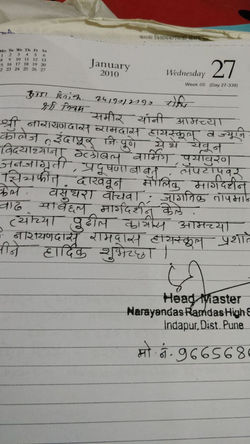 January
2010
Wednesday 27
Week 05 (Day 27-338)
समीर यांनी आमच्या
श्री नारायणदास रामदास हायस्कूल व ज्युनि
कॉलेज, इंदापूर जि पुणे येथे येवून
विद्यार्थ्यांना ग्लोबल वार्मिंग, पर्यावरण
जनजागृती, प्रदूषणाबाबत लॅपटॉपवर
चित्रफीत दाखवून मौलिक मार्गदर्शन
केले. वसुंधरा वाचवा, जागतिक तापमान
वाढ याबद्दल मार्गदर्शन केले.
त्यांच्या पुढील कार्यास आमच्या
नारायणदास रामदास हायस्कूल प्रशा
हार्दिक शुभेच्छा!
Head Master
Narayandas Ramdas High S
Indapur, Dist. Pune
मो. नं. 9665686